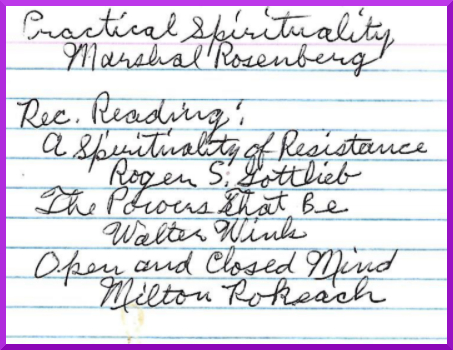 Practical Spirituality
Marshal Rosenberg
Rec. Reading:
A Spirituality of Resistance
Roger S. Gottlieb
The Powers that Be
Walter Wink
Open and Closed Mind
Milton Rokeach